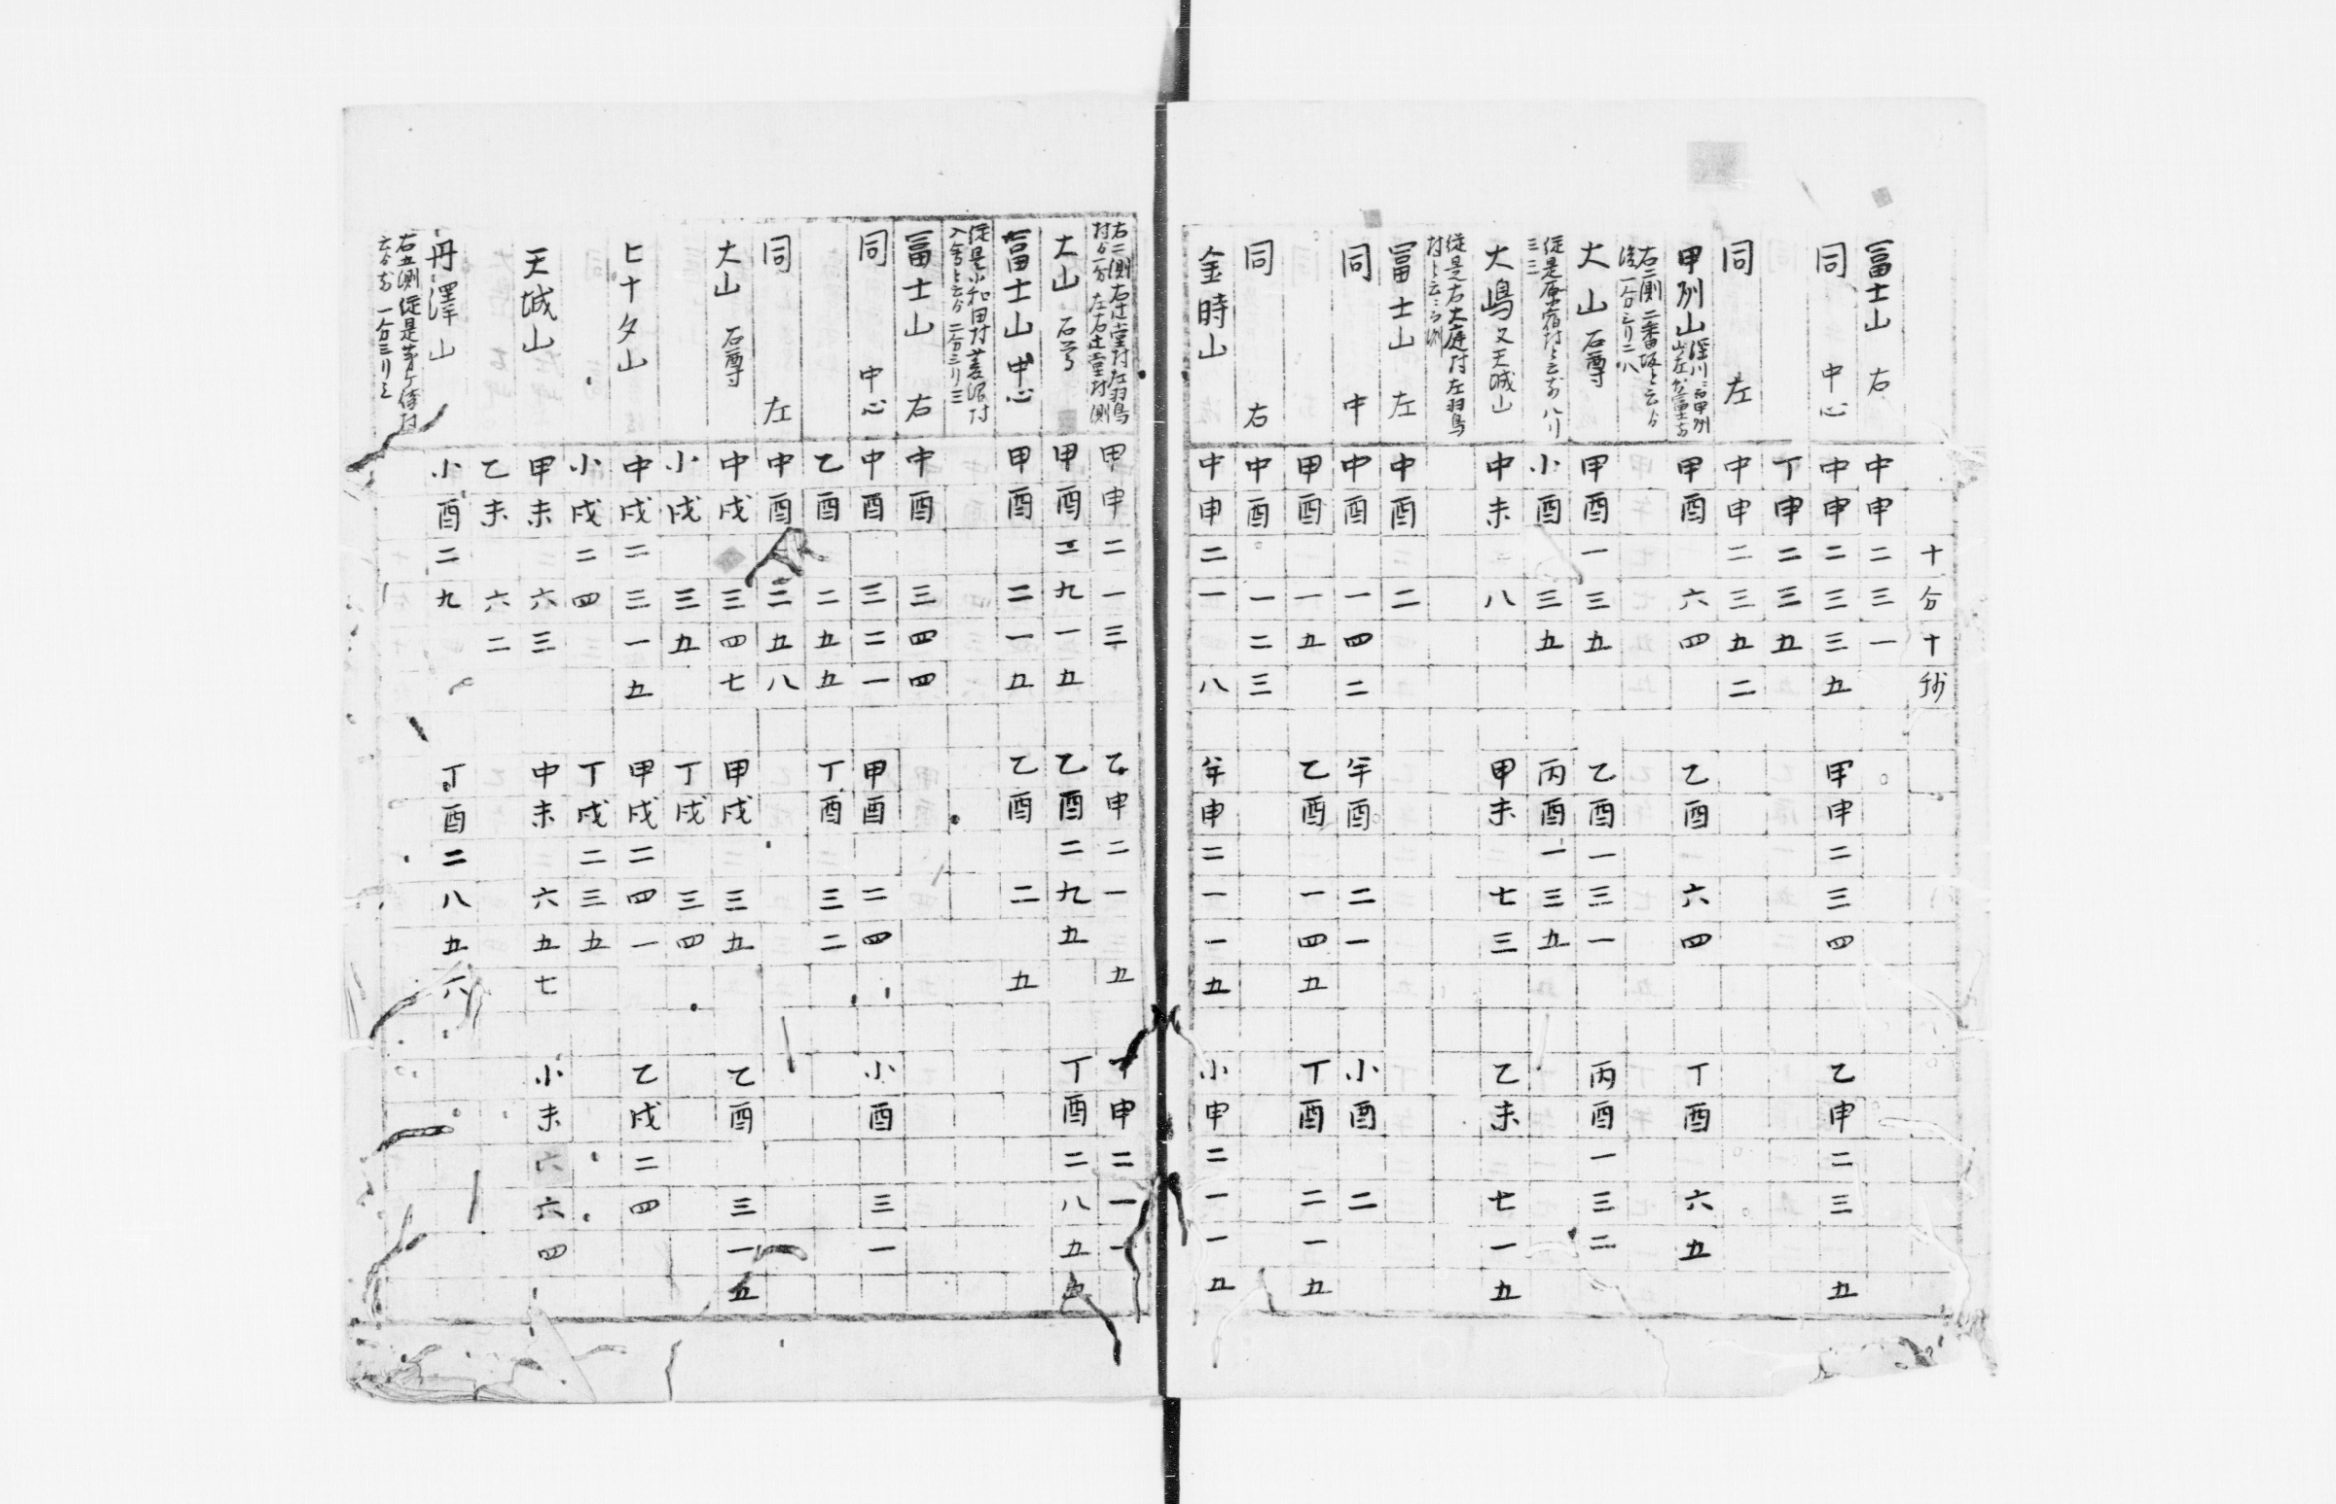 十分十秒
富士山 右 中申二三一
同 中心 中申二三三五 甲申二三四 乙申二三五
丁申二三五
同 左 中申二三五二
甲州山 甲酉六四 乙酉六四 丁酉六五
右二測二番坂と云
大山 石尊 甲酉一三五 乙酉一三一 丙酉一三二
小酉三五 丙酉一三五
大嶋 又天城山 中未八 甲未七三 乙未七一五
從是右大庭村左羽鳥
富士山 左 中酉二
同 中 中酉一四二 半酉二一 小酉二
甲酉一五 乙酉一四五 丁酉二一五
同 右 中酉一二三
金時山 中申二一八 半申二一一五 小申二一一五
右二測右辻堂村左羽鳥 甲申二一三 乙申二一五 丁申二一一
村 左右辻堂村測
大山 石尊 甲酉二九一五 乙酉二九五 丁酉二八五五
富士山 中心 甲酉二一五 乙酉二五
從是小和田村菱沼村
富士山 右 中酉三四四
同 中心 中酉三二一 甲酉二四 小酉三一
乙酉二五五 丁酉三二
同 左 中酉三五八
大山 石尊 中戌三四七 甲戌三五 乙酉三一五
小戌三五 丁戌三四
七十夕山 中戌二三一五 甲戌二四一 乙戌二四
小戌二四 丁戌二三五
天城山 甲未六三 中未六五七 小未六六四
乙未六二
丹澤山 小酉二九 丁酉二八五六
右五測從是茅ヶ﨑村